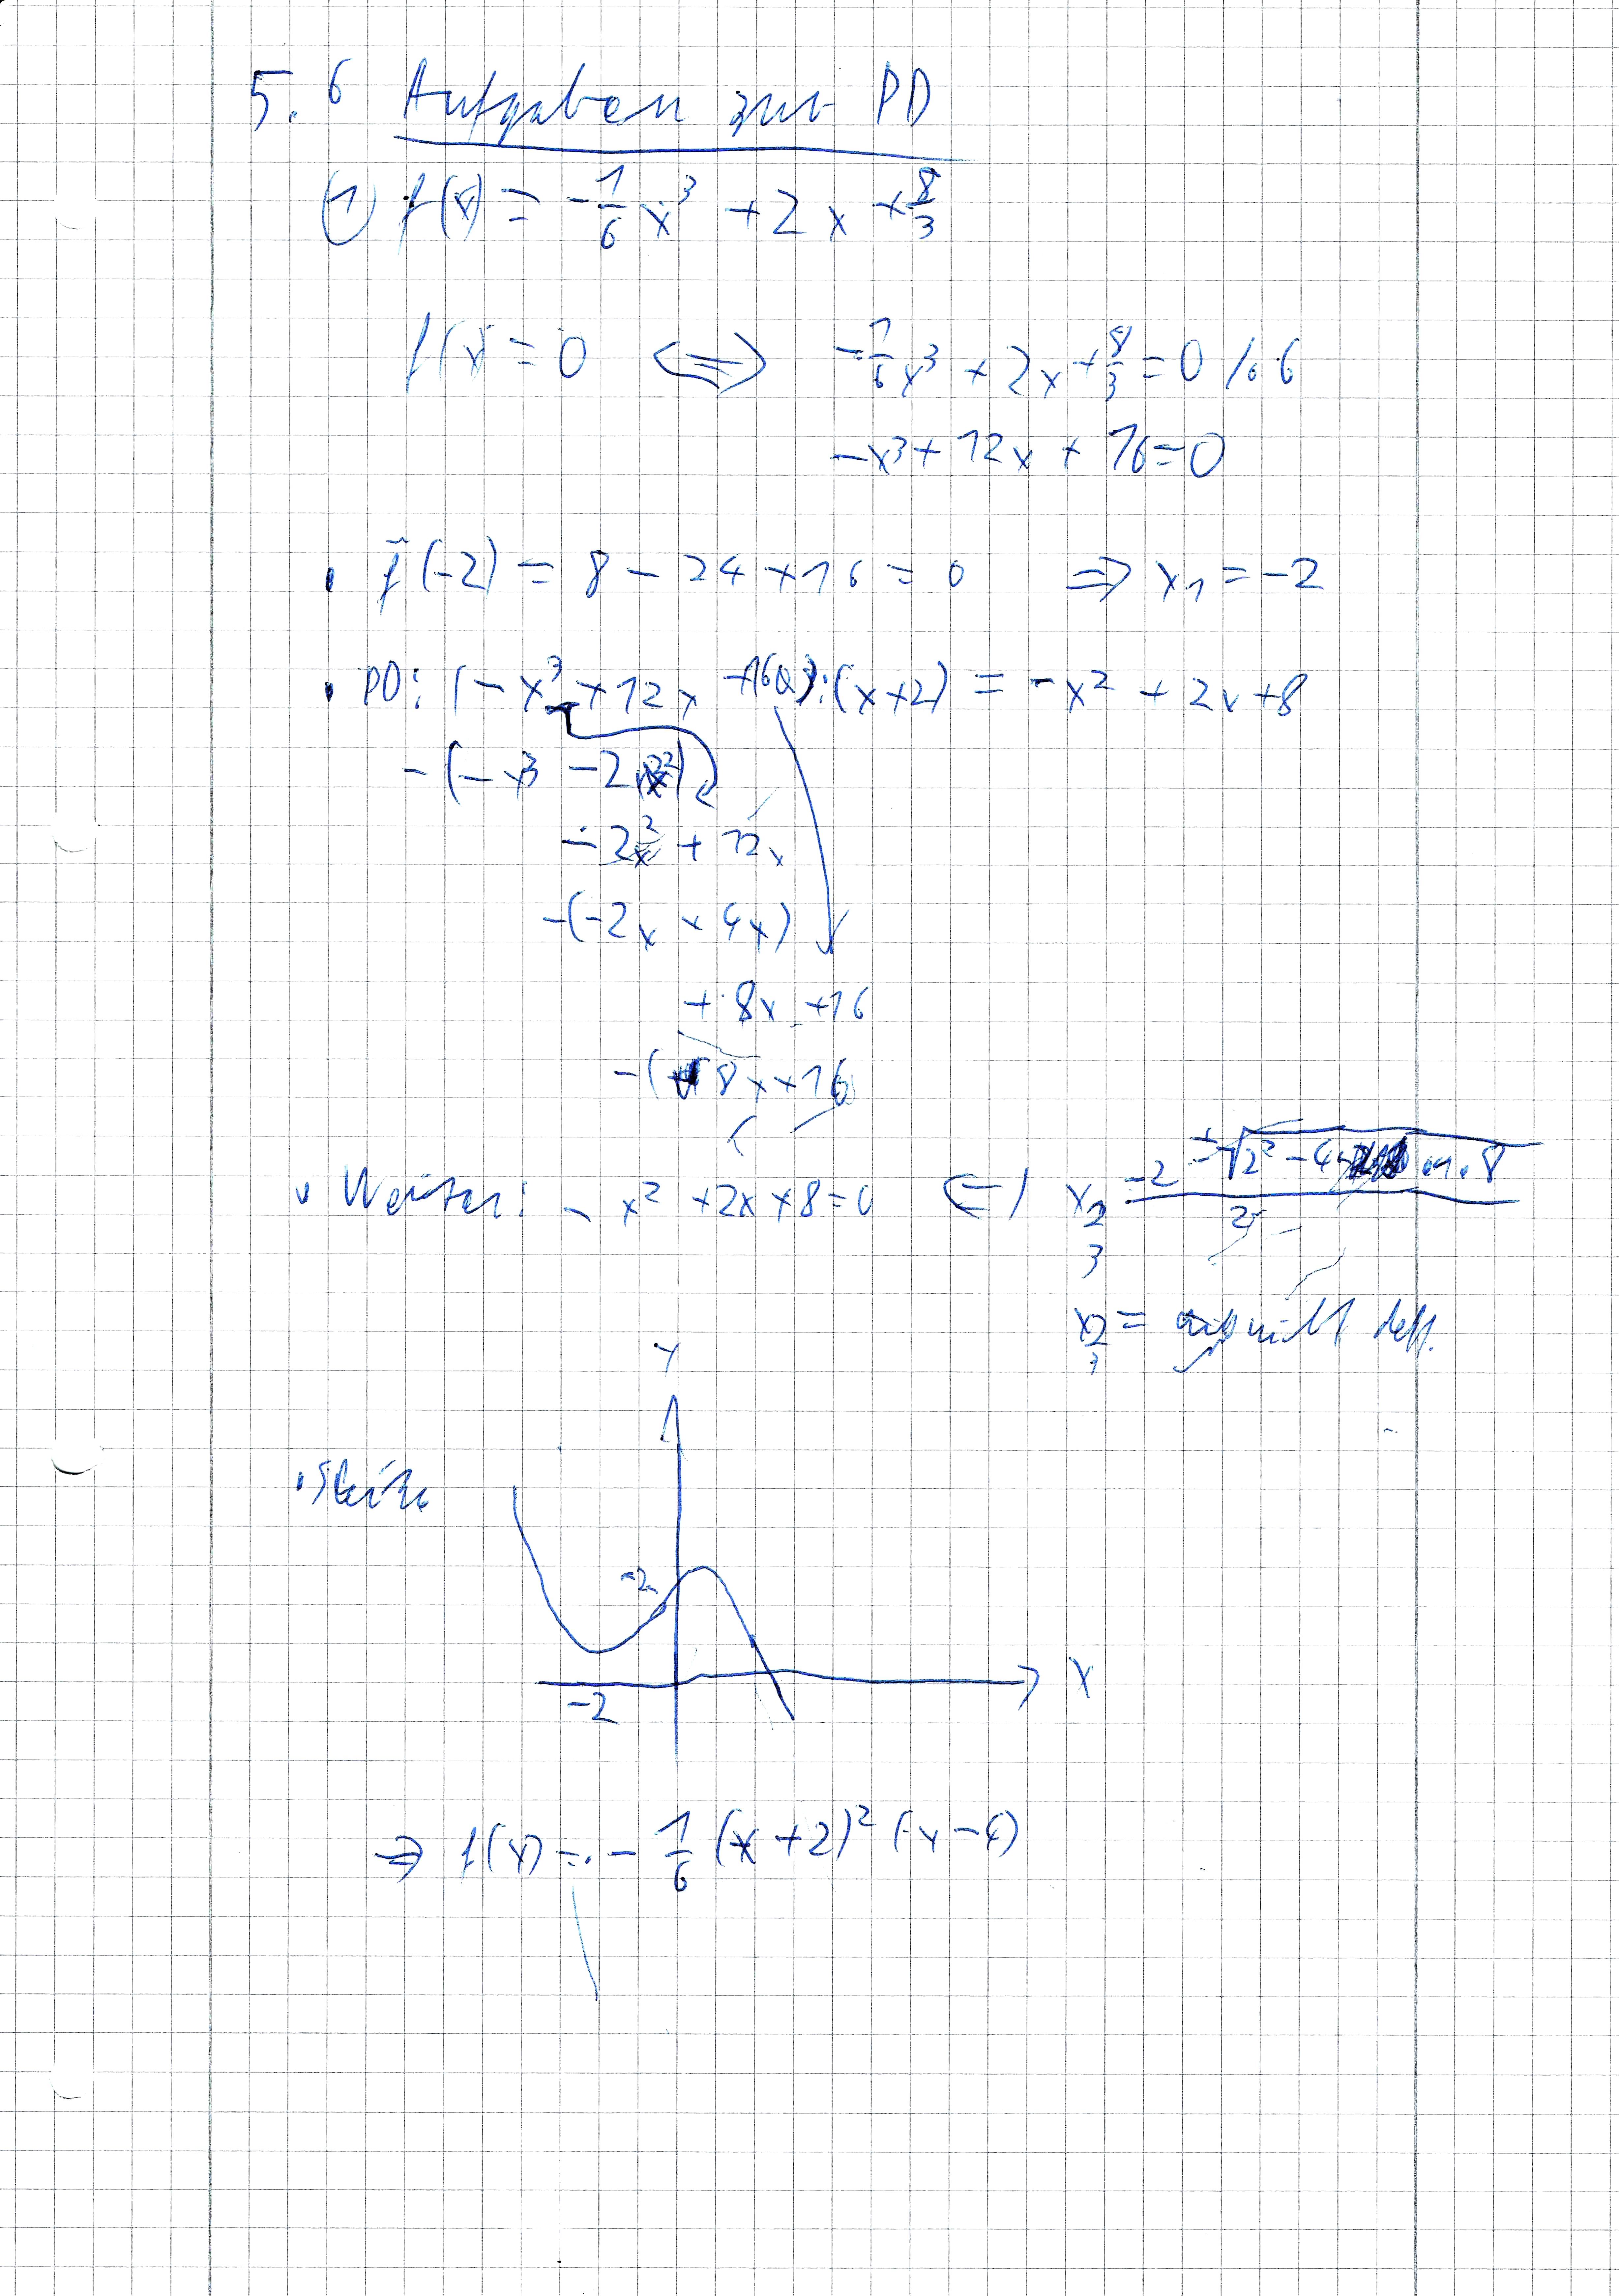 5.6 Aufgaben zur PD
① f(x) = -1/6 x³ + 2x + 8/3
f(x) = 0 ⟺ -1/6 x³ + 2x + 8/3 = 0 /·6
-x³ + 12x + 16 = 0
• f̃(-2) = 8 - 24 + 16 = 0 ⇒ x₁ = -2
• PD: (-x³ + 12x + 16):(x+2) = -x² + 2x + 8
-(-x³ - 2x²)
-2x² + 12x
-(-2x + 4x)
+8x +16
-(8x + 16
• Weiter: -x² + 2x + 8 = 0 ⟺ x₂ = (-2 ± √(2² - 4 · 8)) / 2
3
x₂ = nicht def.
3
Y
• Skizze
-2
X
-2
⇒ f(x) = -1/6 (x+2)² (x-4)